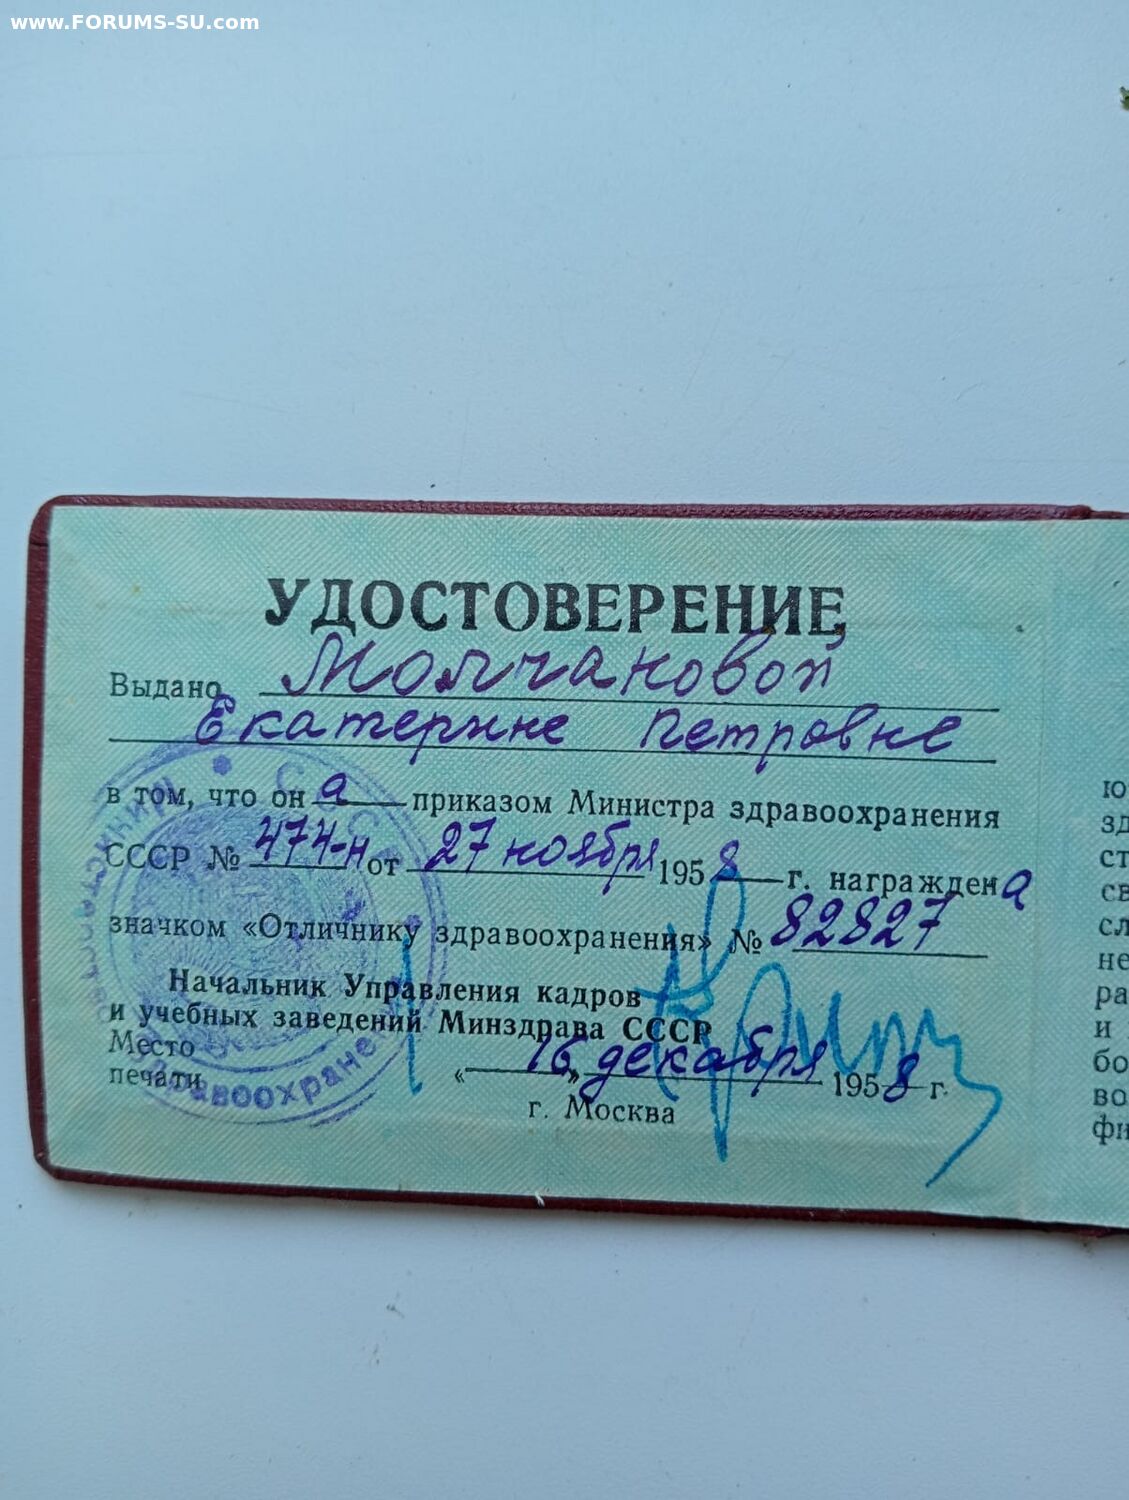 www.FORUMS-SU.com
УДОСТОВЕРЕНИЕ
Выдано Молчановой
Екатерине Петровне
в том, что он а приказом Министра здравоохранения
СССР № 474-н от 27 ноября 1958 г. награжден а
значком «Отличнику здравоохранения» № 82827
Начальник Управления кадров
и учебных заведений Минздрава СССР
Место
печати
«16» декабря 1958 г.
г. Москва